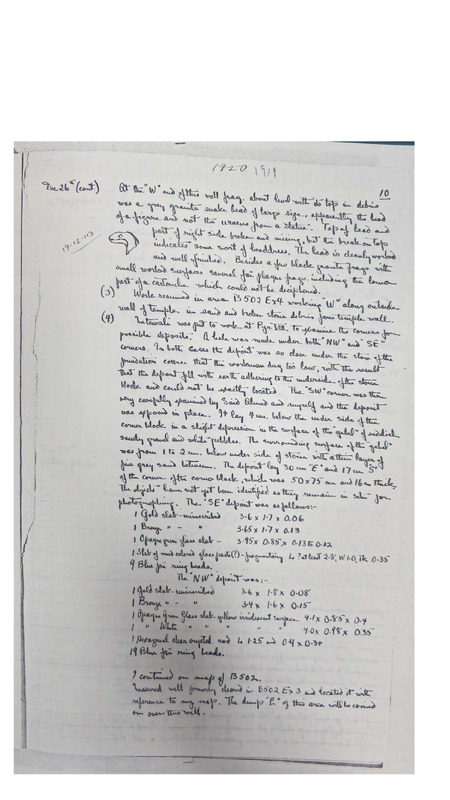 1920 1919
10
Dec 26th (cont)
At the "W" end of this wall frag. about level with its top in debris
was a grey granite snake head of large size, apparently the head
of a figure and not the uraeus from a statue. Top of head and
19-12-113
part of right side broken and missing, but the break on top
indicates some sort of headdress. The head is cleanly worked
and well finished. Besides a few black granite frags with
small worked surfaces several fai plaque frags including the lower
part of a cartouche which could not be deciphered.
(3) Work resumed in area B502 Ex4 working "W" along outside
wall of temple, in sand and broken stone debris from temple wall.
(4) was put to work at Pyr. VIII to examine the corners for
possible deposits. A hole was made under both "NW" and "SE"
corners. In both cases the deposit was so close under the stone of the
foundation course that the workmen dug too low, with the result
that the deposit fell with earth adhering to the underside of the stone
block and could not be exactly located. The "SW" corner was then
very carefully examined by Said Ahmed and myself and the deposit
was exposed in place. It lay 4 cm. below the under side of the
corner block in a slight depression in the surface of the "gebel" of reddish
sandy gravel and white pebbles. The surrounding surface of the "gebel"
was from 1 to 2 cm. below under side of stones with a thin layer of
fine grey sand between. The deposit lay 30 cm "E" and 17 cm "S"
of the corner of the corner block, which was 50 x 75 cm and 16 cm thick.
The objects have not yet been identified as they remain in situ for
photographing. The "SE" deposit was as follows:-
1 Gold slab - uninscribed 3.6 x 1.7 x 0.06
1 Bronze " - " 3.65 x 1.7 x 0.13
1 Opaque green glass slab - 3.95 x 0.85 x 0.13 to 0.22
1 Slab of mud colored glass paste(?) - fragmentary L. ? at least 2.8, W 1.0, Th. 0.35
9 Blue fai ring beads.
The "NW" deposit was:-
1 Gold slab - uninscribed 3.6 x 1.8 x 0.08
1 Bronze " - " 3.4 x 1.6 x 0.15
1 Opaque green glass slab - yellow iridescent surface 4.1 x 0.85 x 0.4
1 " White " " " " " 4.0 x 0.98 x 0.35
1 Hexagonal clear crystal rod L. 1.25 and 0.4 x 0.34
19 Blue fai ring beads.
I continued on map of B502.
Measured wall formerly cleared in B502 Ex3 and located it with
reference to my map. The dump "E" of this area will be carried
on over this wall.